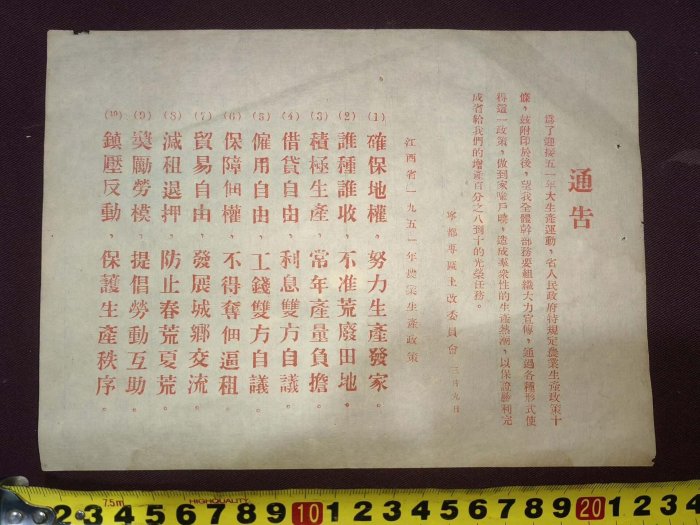 通告
為了迎接五一年大生產運動，省人民政府特規定農業生產政策十
條，茲附印於後，望我全體幹部務要組織大力宣傳，通過各種形式使
得這一政策，做到家喻戶曉，造成羣衆性的生產熱潮，以保證勝利完
成省給我們的增產百分之八到十的光榮任務。
寧都專區土改委員會 三月九日
江西省一九五一年農業生產政策
(1) 確保地權，努力生產發家。
(2) 誰種誰收，不准荒廢田地。
(3) 積極生產，常年產量負擔
(4) 借貸自由，利息雙方自議
(5) 僱用自由，工錢雙方自議
(6) 保障佃權，不得奪佃逼租
(7) 貿易自由，發展城鄉交流
(8) 減租退押，防止春荒夏荒
(9) 獎勵勞模，提倡勞動互助
(10) 鎮壓反動，保護生產秩序。
7.5m HIGH QUALITY
2 3 4 5 6 7 8 9 10 1 2 3 4 5 6 7 8 9 20 1 2 3 4